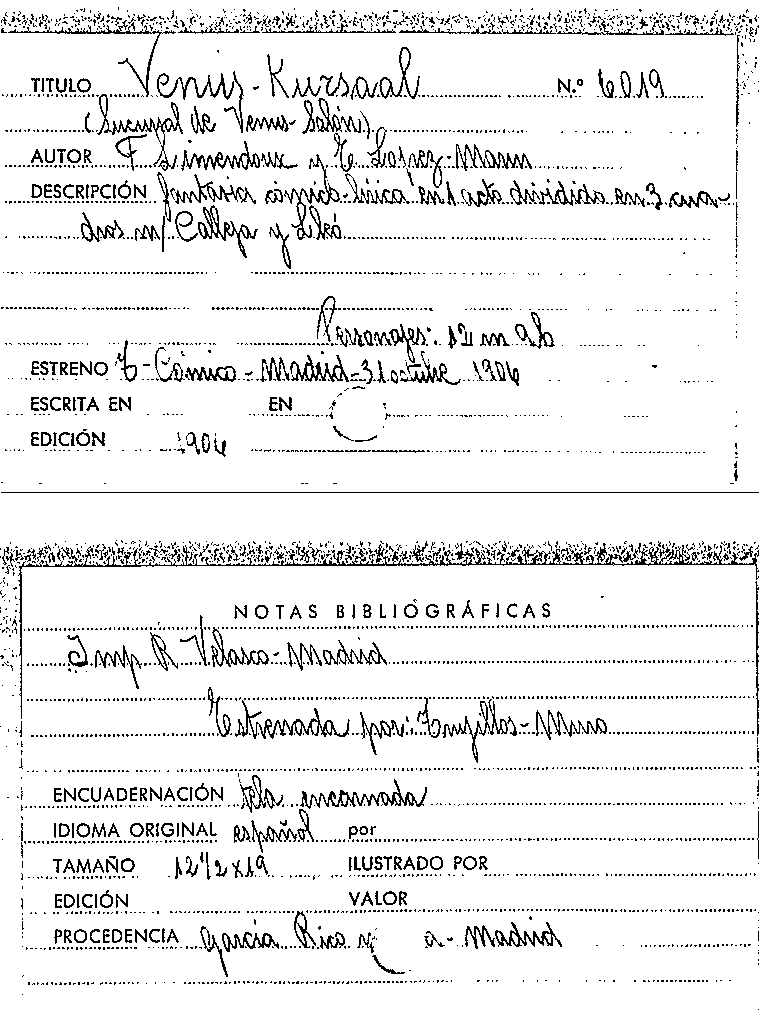 TITULO Venus-Kursaal N.º 6019
(Sucursal de Venus-Salón)
AUTOR F Limendoux y E Lopez-Marin
DESCRIPCIÓN fantasia cómico-lírica en 1 acto dividido en 3 cua-
dros m/ Calleja y Lleó
Personajes: 12 m 9 h
ESTRENO T-Cómico-Madrid-31 octubre 1906
ESCRITA EN EN
EDICIÓN 1906
NOTAS BIBLIOGRÁFICAS
Imp R Velasco-Madrid
Estrenada por: Trujillos-Miro
ENCUADERNACIÓN tela encarnada
IDIOMA ORIGINAL español por
TAMAÑO 12 1/2 x 19 ILUSTRADO POR
EDICIÓN VALOR
PROCEDENCIA García Rico y a-Madrid